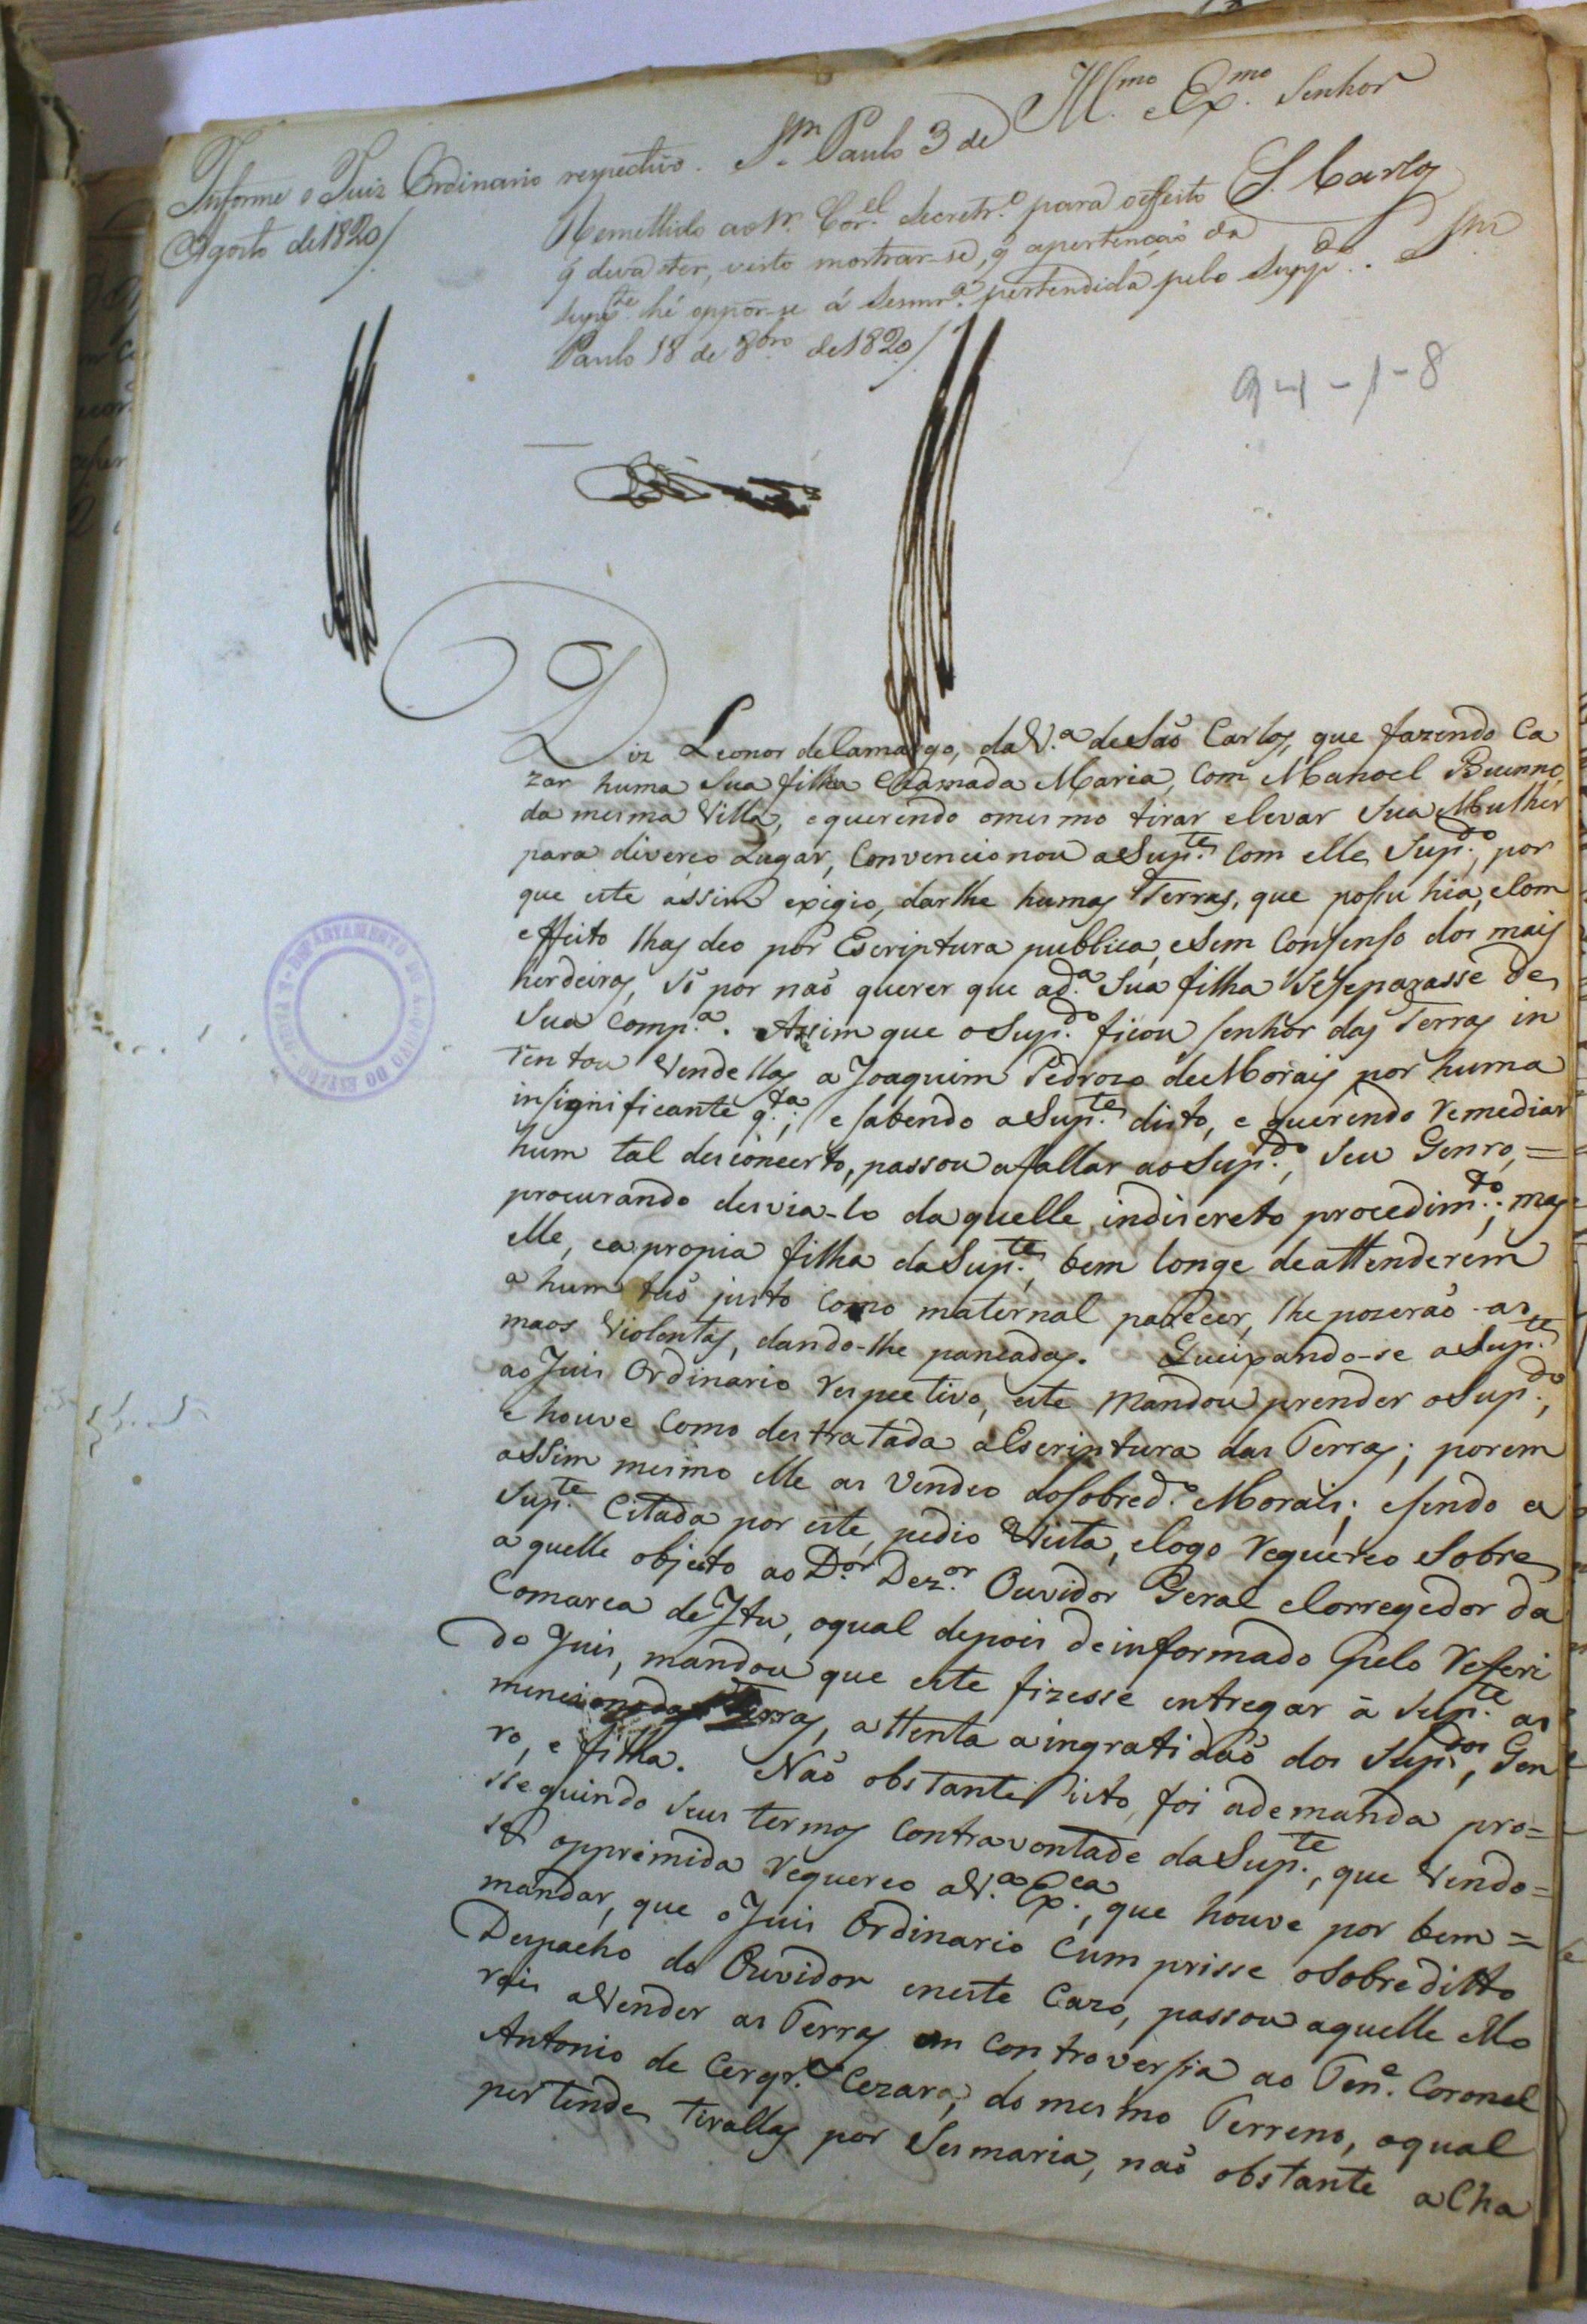 Ill.mo e Ex.mo Senhor
Informe o Juiz Ordinario respectivo. S.m Paulo 3 de
Agosto de 1820/
S. Carlos
Remettido ao Sr. Cor.el Secretr.o para o effeito
q̃ deva ter, visto mostrar-se, q̃ apertenção da
Supp.te hé oppor-se á Sesmr.a pertendida pelo Supp.do. S.m
Paulo 18 de 8bro de 1820/
94-1-8
Diz Leonor de Camargo, da V.a de São Carlos, que fazendo ca
zar huma sua filha chamada Maria, com Manoel Buenno,
da mesma Villa, e querendo o mesmo tirar e levar sua Mulher
para diverço Lugar, Convencionou a Sup.te com elle Sup.do, por
que este assim exigio, darlhe humas Terras, que possu hia, e com
effeito lhas deo por Escriptura publica, e sem Consenso dos mais
herdeiros, só por não querer que a d.a sua filha se separasse de
sua comp.a. Assim que o Sup.do ficou senhor das Terras in
tentou vendellas a Joaquim Pedrozo de Morais por huma
insignificante q.ta; e sabendo a Sup.te disto, e querendo remediar
hum tal desconcerto, passou a fallar ao Sup.do, seu Genro, =
procurando desvia-lo daquelle indiscreto procedim.to; mas
elle, e a propia filha da Sup.te, bem longe de attenderem
a hum tão justo como maternal parecer, lhe pozerão as
maos violentas, dando-lhe pancadas. Queixando-se a Sup.te
ao Juis Ordinario respectivo, este mandou prender o Sup.do,
e houve como destratada a Escriptura das Terras; porem
assim mesmo elle as vendeo ao sobred.o Morais; e sendo a
Sup.te Citada por este, pedio Vista, e logo requereo sobre
aquelle objecto ao D.or Dez.or Ouvidor Geral e Corregedor da
Comarca de Itu, o qual depois de informado pelo referi
do Juis, mandou que este fizesse entregar à Sup.te as
mencionadas Terras, attenta a ingratidão dos Sup.dos, Gen
ro, e filha. Não obstante isto, foi a demanda pro=
sseguindo seus termos contra vontade da Sup.te, que vendo=
se opprimida requereo a V.a Ex.cia, que houve por bem =
mandar, que o Juis Ordinario cumprisse o sobreditto
Despacho do Ouvidor e neste Cazo, passou aquelle Mo
rais a vender as Terras em controversia ao Ten.e Coronel
Antonio de Cerqr.a Cezar, do mesmo Terreno, o qual
pertende tirallas por Sesmaria, não obstante a cha